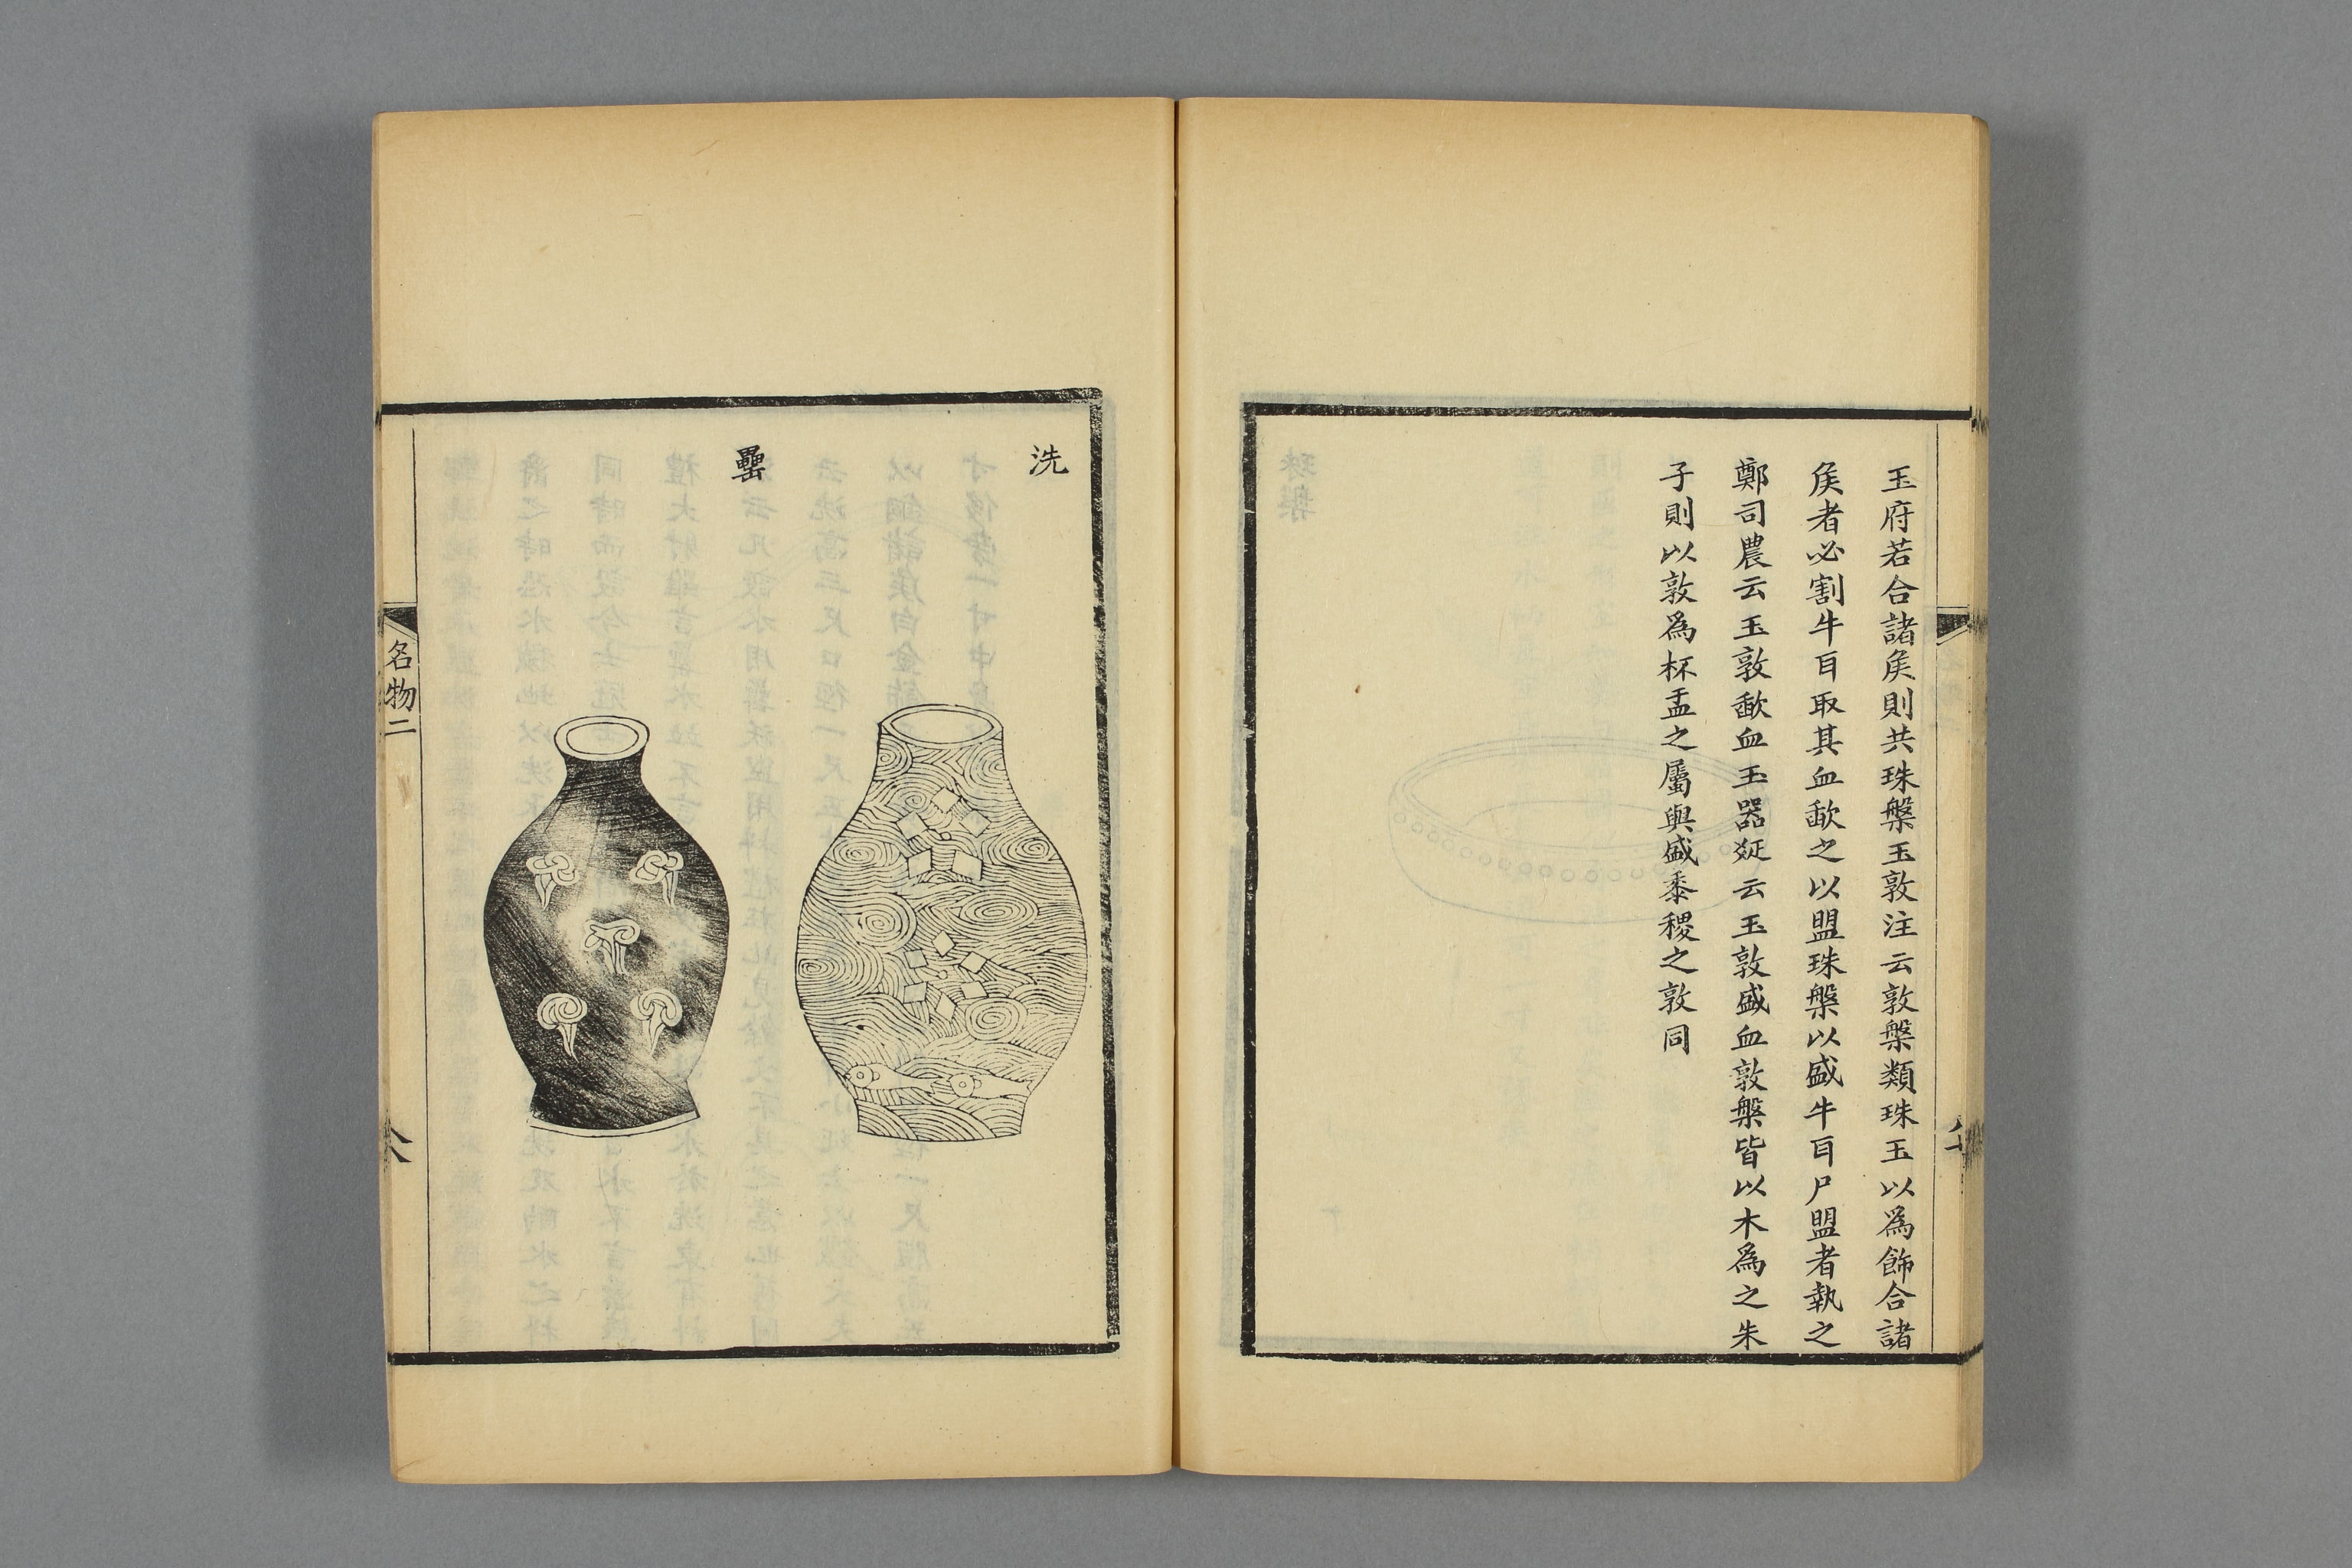 玉府若合諸矦則共珠槃玉敦注云敦槃類珠玉以為飾合諸
矦者必割牛耳取其血歃之以盟珠槃以盛牛耳尸盟者執之
鄭司農云玉敦歃血玉器疑云玉敦盛血敦槃皆以木為之朱
子則以敦為杯盂之屬與盛黍稷之敦同
洗
罍
名物二
八